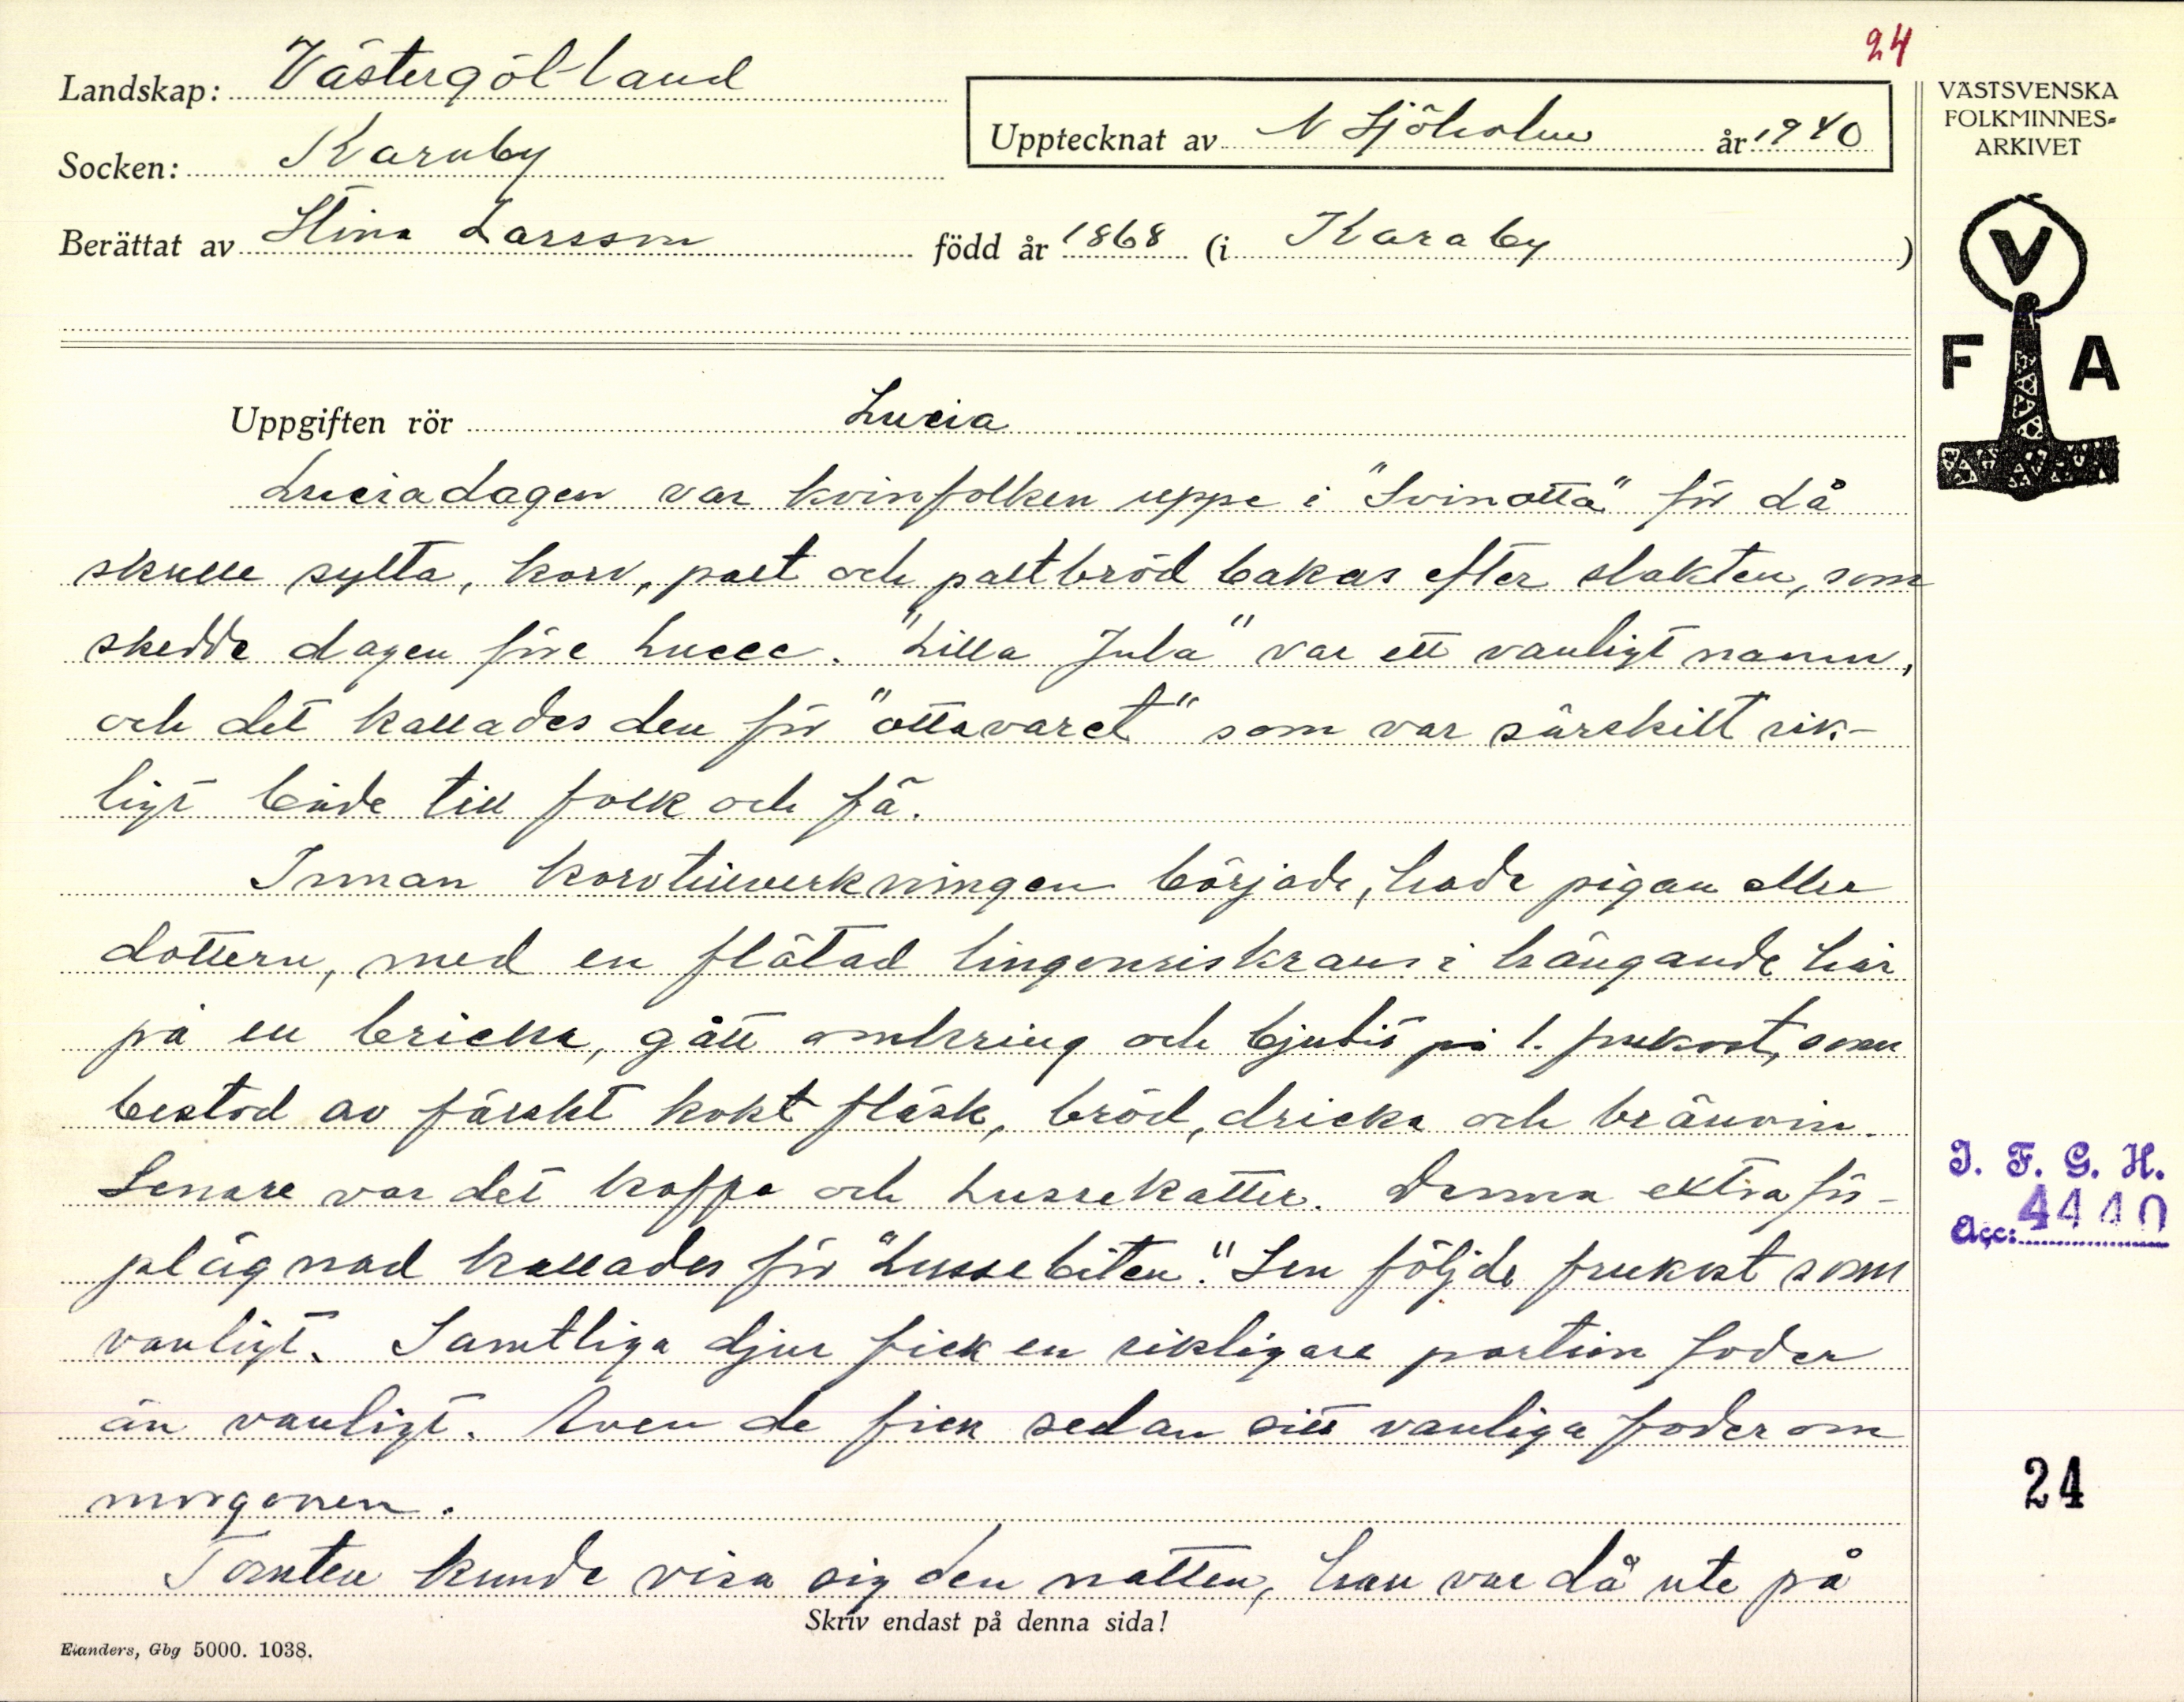 24
Landskap: Västergötland
Socken: Karaby
Upptecknat av N Sjöholm år 1940
Berättat av Stina Larsson född år 1868 (i Karaby)
VÄSTSVENSKA
FOLKMINNES-
ARKIVET
V
F A
Uppgiften rör Lucia
Luciadagen var kvinfolken uppe i "Svinotta" för då
skulle sylta, korv, palt och paltbröd bakas efter slakten, som
skedde dagen före Lucce. "Lilla Jula" var ett vanligt namn,
och det kallades den för "ottavaret" som var särskilt rik-
ligt både till folk och fä.
Innan korvtillverkningen började, hade pigan eller
dottern, med en flätad lingonriskrans i hängande hår
på en bricka, gått omkring och bjudit på l. frukost, som
bestod av färskt kokt fläsk, bröd, dricka och brännvin.
Senare var det kaffe och lussekatter. Denna extra för-
plägnad kallades för "Lussebiten". Sen följde frukost som
vanligt. Samtliga djur fick en rikligare portion foder
än vanligt. Även de fick sedan sitt vanliga foder om
morgonen.
Tomten kunde visa sig den natten, han var då ute på
Skriv endast på denna sida!
Elanders, Gbg 5000. 1038.
I. F. G. H.
Acc: 4440
24